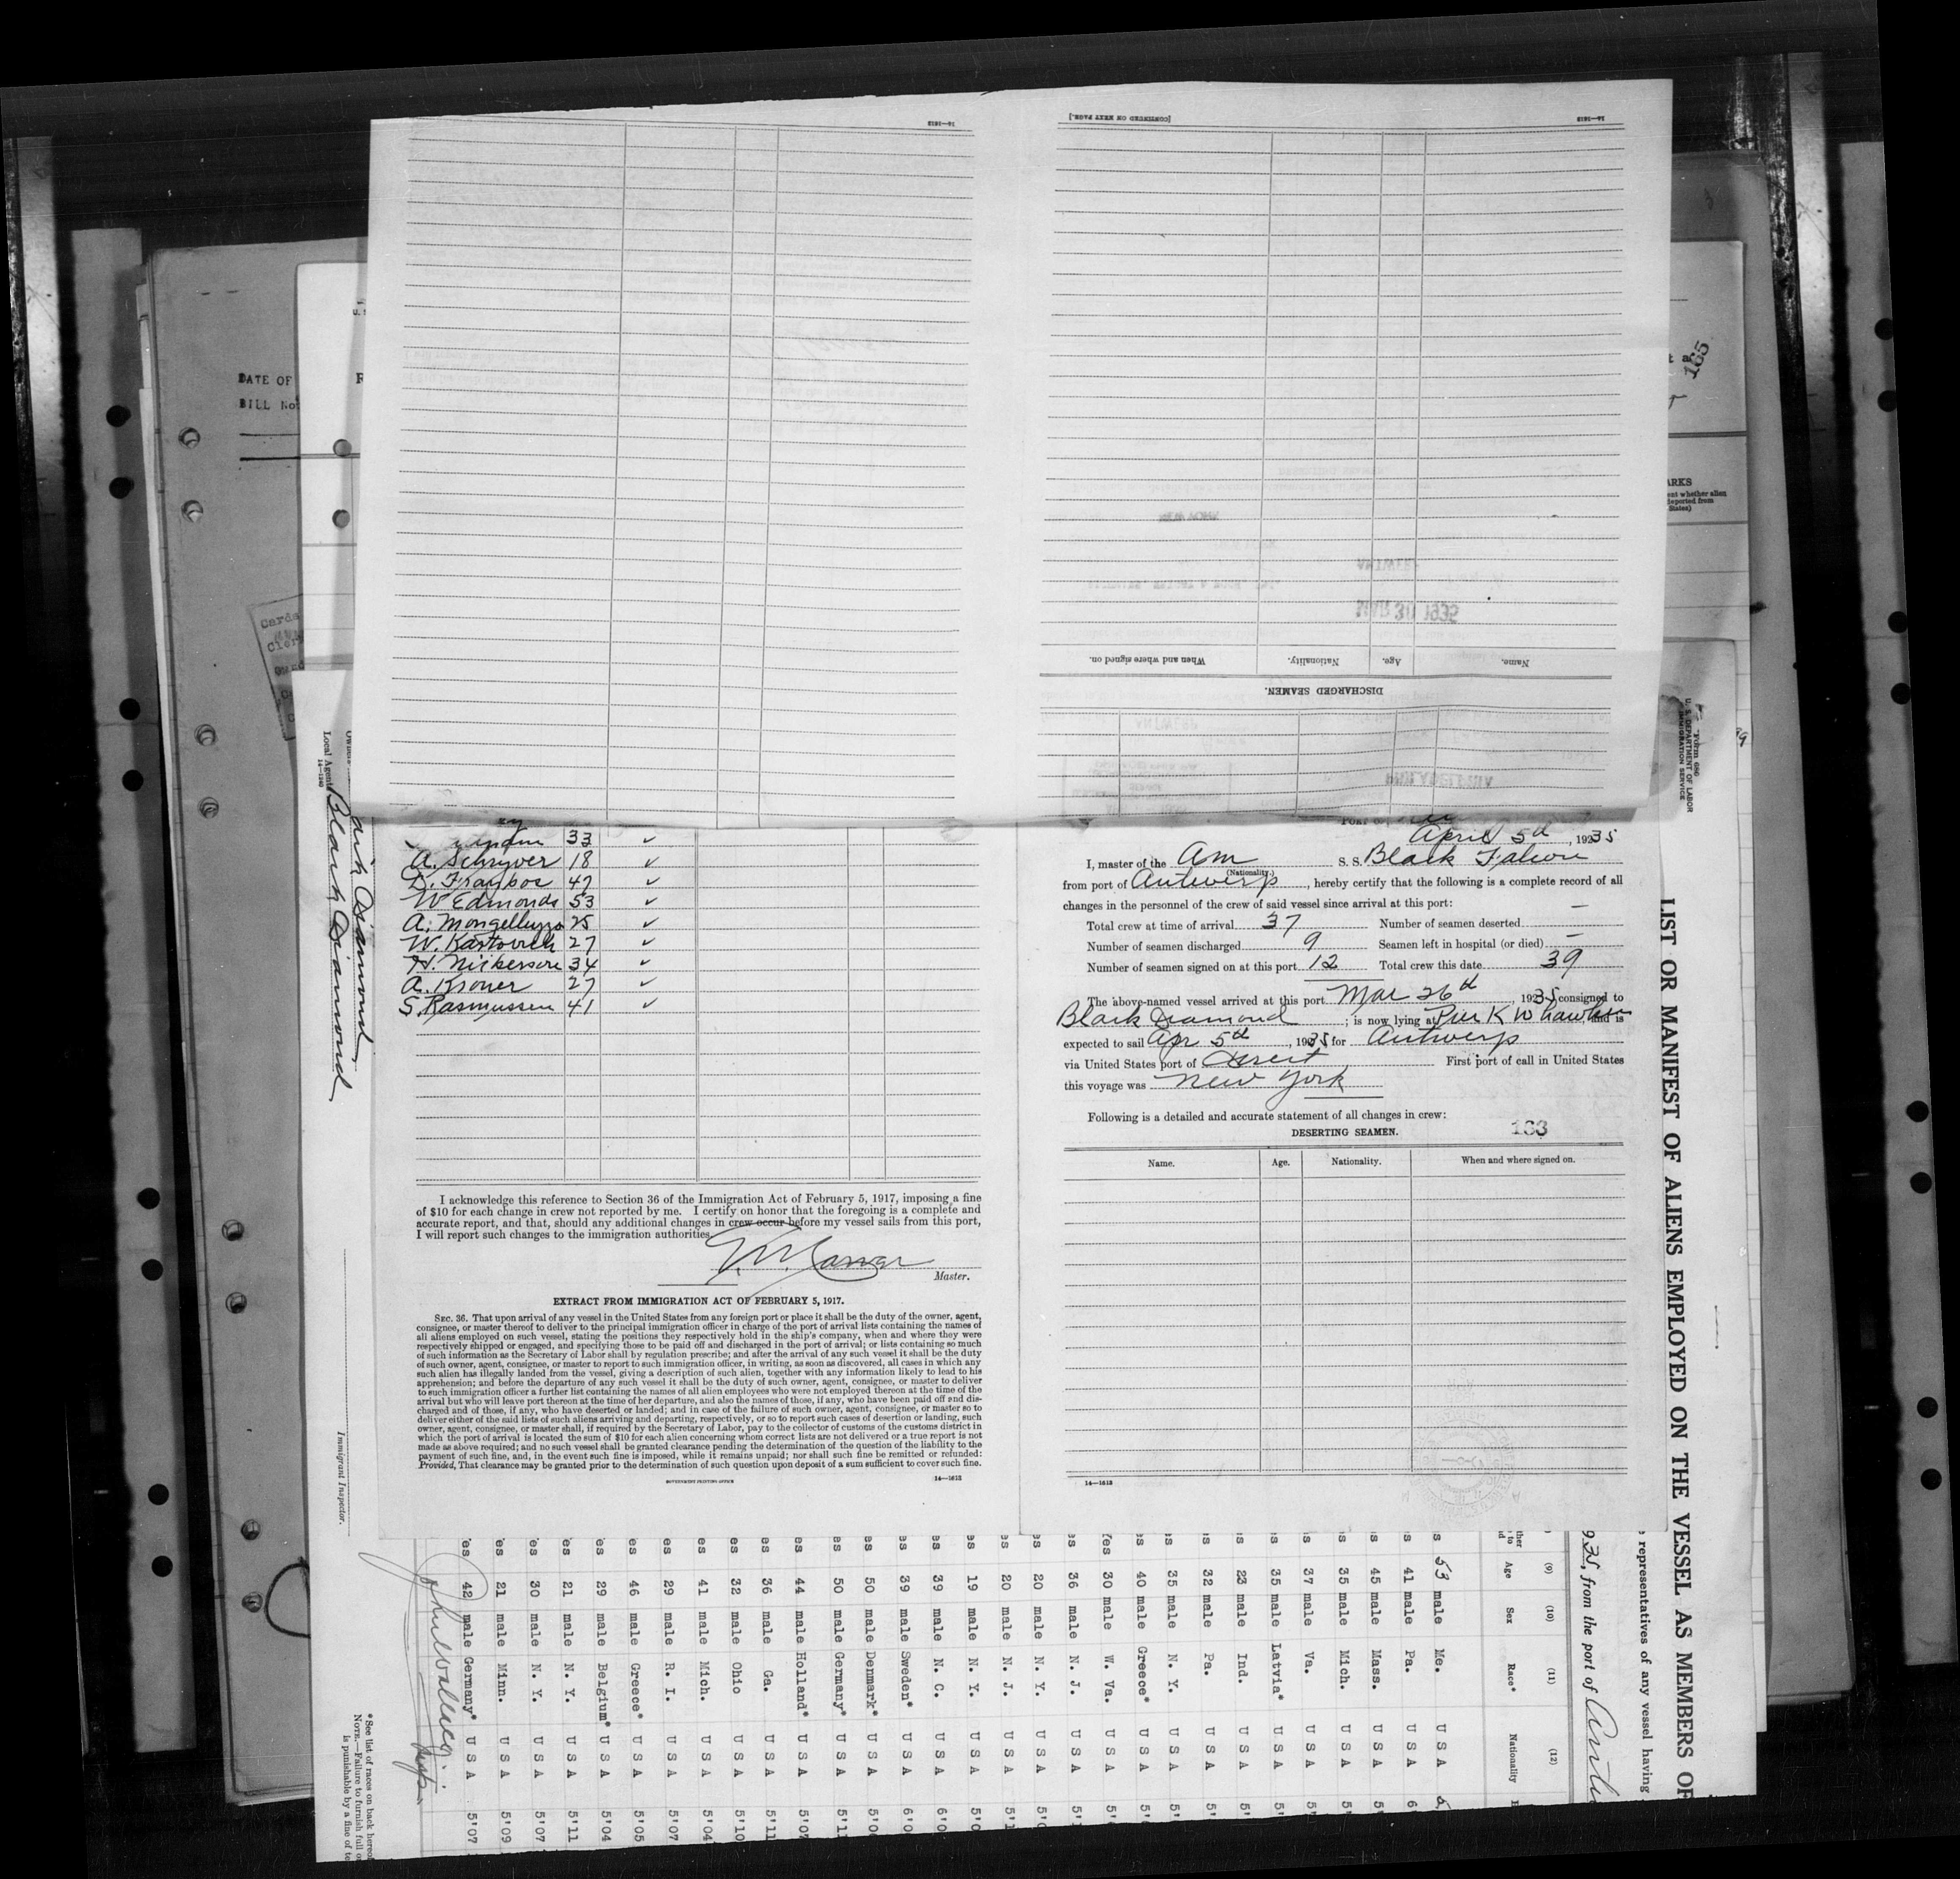 DATE OF
BILL No.
[CONTINUED ON NEXT PAGE.]
14—1613
14—1613
MAR 30 1935
Name.
Age.
Nationality.
When and where signed on.
DISCHARGED SEAMEN.
165
Form 680
U. S. DEPARTMENT OF LABOR
IMMIGRATION SERVICE
33 ✓
A. Schryver 18 ✓
47 ✓
W Edmonds 53 ✓
A. Mongelluzzo 25 ✓
W. Kartovich 27 ✓
H. Nickerson 34 ✓
A. Kroner 27 ✓
S. Rasmussen 41 ✓
I acknowledge this reference to Section 36 of the Immigration Act of February 5, 1917, imposing a fine
of $10 for each change in crew not reported by me. I certify on honor that the foregoing is a complete and
accurate report, and that, should any additional changes in crew occur before my vessel sails from this port,
I will report such changes to the immigration authorities.
Master.
EXTRACT FROM IMMIGRATION ACT OF FEBRUARY 5, 1917.
SEC. 36. That upon arrival of any vessel in the United States from any foreign port or place it shall be the duty of the owner, agent,
consignee, or master thereof to deliver to the principal immigration officer in charge of the port of arrival lists containing the names of
all aliens employed on such vessel, stating the positions they respectively hold in the ship's company, when and where they were
respectively shipped or engaged, and specifying those to be paid off and discharged in the port of arrival; or lists containing so much
of such information as the Secretary of Labor shall by regulation prescribe; and after the arrival of any such vessel it shall be the duty
of such owner, agent, consignee, or master to report to such immigration officer, in writing, as soon as discovered, all cases in which any
such alien has illegally landed from the vessel, giving a description of such alien, together with any information likely to lead to his
apprehension; and before the departure of any such vessel it shall be the duty of such owner, agent, consignee, or master to deliver
to such immigration officer a further list containing the names of all alien employees who were not employed thereon at the time of the
arrival but who will leave port thereon at the time of her departure, and also the names of those, if any, who have been paid off and dis-
charged and of those, if any, who have deserted or landed; and in case of the failure of such owner, agent, consignee, or master so to
deliver either of the said lists of such aliens arriving and departing, respectively, or so to report such cases of desertion or landing, such
owner, agent, consignee, or master shall, if required by the Secretary of Labor, pay to the collector of customs of the customs district in
which the port of arrival is located the sum of $10 for each alien concerning whom correct lists are not delivered or a true report is not
made as above required; and no such vessel shall be granted clearance pending the determination of the question of the liability to the
payment of such fine, and, in the event such fine is imposed, while it remains unpaid; nor shall such fine be remitted or refunded:
Provided, That clearance may be granted prior to the determination of such question upon deposit of a sum sufficient to cover such fine.
GOVERNMENT PRINTING OFFICE 14—1613
April 5th, 1935
I, master of the Am S. S. Black Falcon
(Nationality.)
from port of Antwerp, hereby certify that the following is a complete record of all
changes in the personnel of the crew of said vessel since arrival at this port:
Total crew at time of arrival 37 Number of seamen deserted —
Number of seamen discharged 9 Seamen left in hospital (or died) —
Number of seamen signed on at this port 12 Total crew this date 39
The above-named vessel arrived at this port Mar 26th, 1935, consigned to
Black Diamond; is now lying at Pier K Whawken and is
expected to sail Apr 5th, 1935 for Antwerp
via United States port of Direct First port of call in United States
this voyage was New York
Following is a detailed and accurate statement of all changes in crew:
DESERTING SEAMEN. 133
Name. Age. Nationality. When and where signed on.
14—1613
LIST OR MANIFEST OF ALIENS EMPLOYED ON THE VESSEL AS MEMBERS OF
representatives of any vessel having
from the port of
(9) (10) (11) (12)
Age Sex Race* Nationality
53 male Me. U S A
41 male Pa. U S A
45 male Mass. U S A
35 male Mich. U S A
37 male Va. U S A
35 male Latvia* U S A
23 male Ind. U S A
32 male Pa. U S A
35 male N. Y. U S A
40 male Greece* U S A
30 male W. Va. U S A
36 male N. J. U S A
20 male N. Y. U S A
20 male N. J. U S A
19 male N. Y. U S A
39 male N. C. U S A
39 male Sweden* U S A
50 male Denmark* U S A
50 male Germany* U S A
44 male Holland* U S A
36 male Ga. U S A
32 male Ohio U S A 5'10
41 male Mich. U S A 5'04
29 male R. I. U S A 5'07
46 male Greece* U S A 5'05
29 male Belgium* U S A 5'04
21 male N. Y. U S A 5'11
30 male N. Y. U S A 5'07
21 male Minn. U S A 5'09
42 male Germany* U S A 5'07
* See list of races on back hereof
NOTE.—Failure to furnish full o
is punishable by a fine of te
Immigrant Inspector.
Local Agent Black Diamond
14—1240